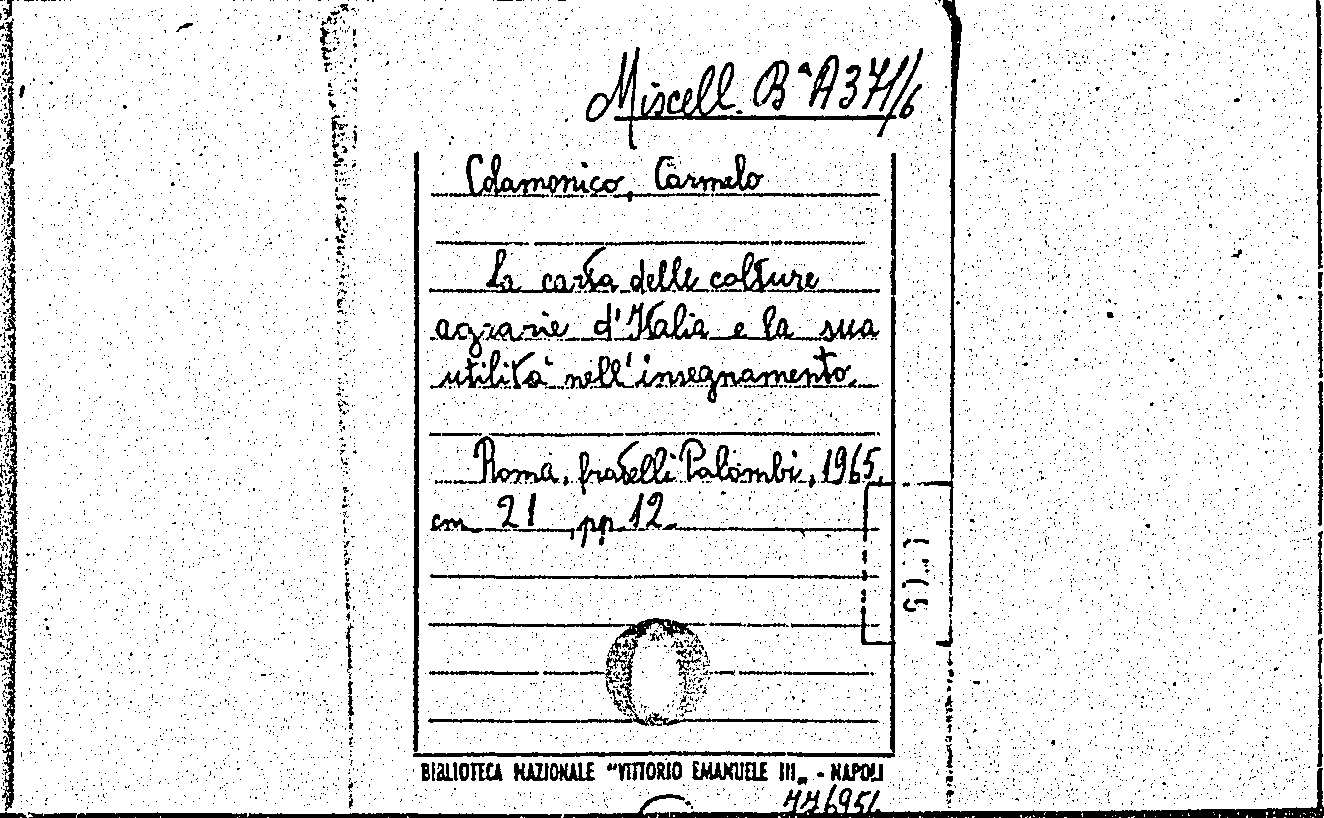 Miscell. Bª A 371/6
Colamonico, Carmelo
La carta delle colture
agrarie d'Italia e la sua
utilità nell'insegnamento.
Roma, fratelli Palombi, 1965,
cm 21, pp. 12.
BIBLIOTECA NAZIONALE "VITTORIO EMANUELE III„ - NAPOLI